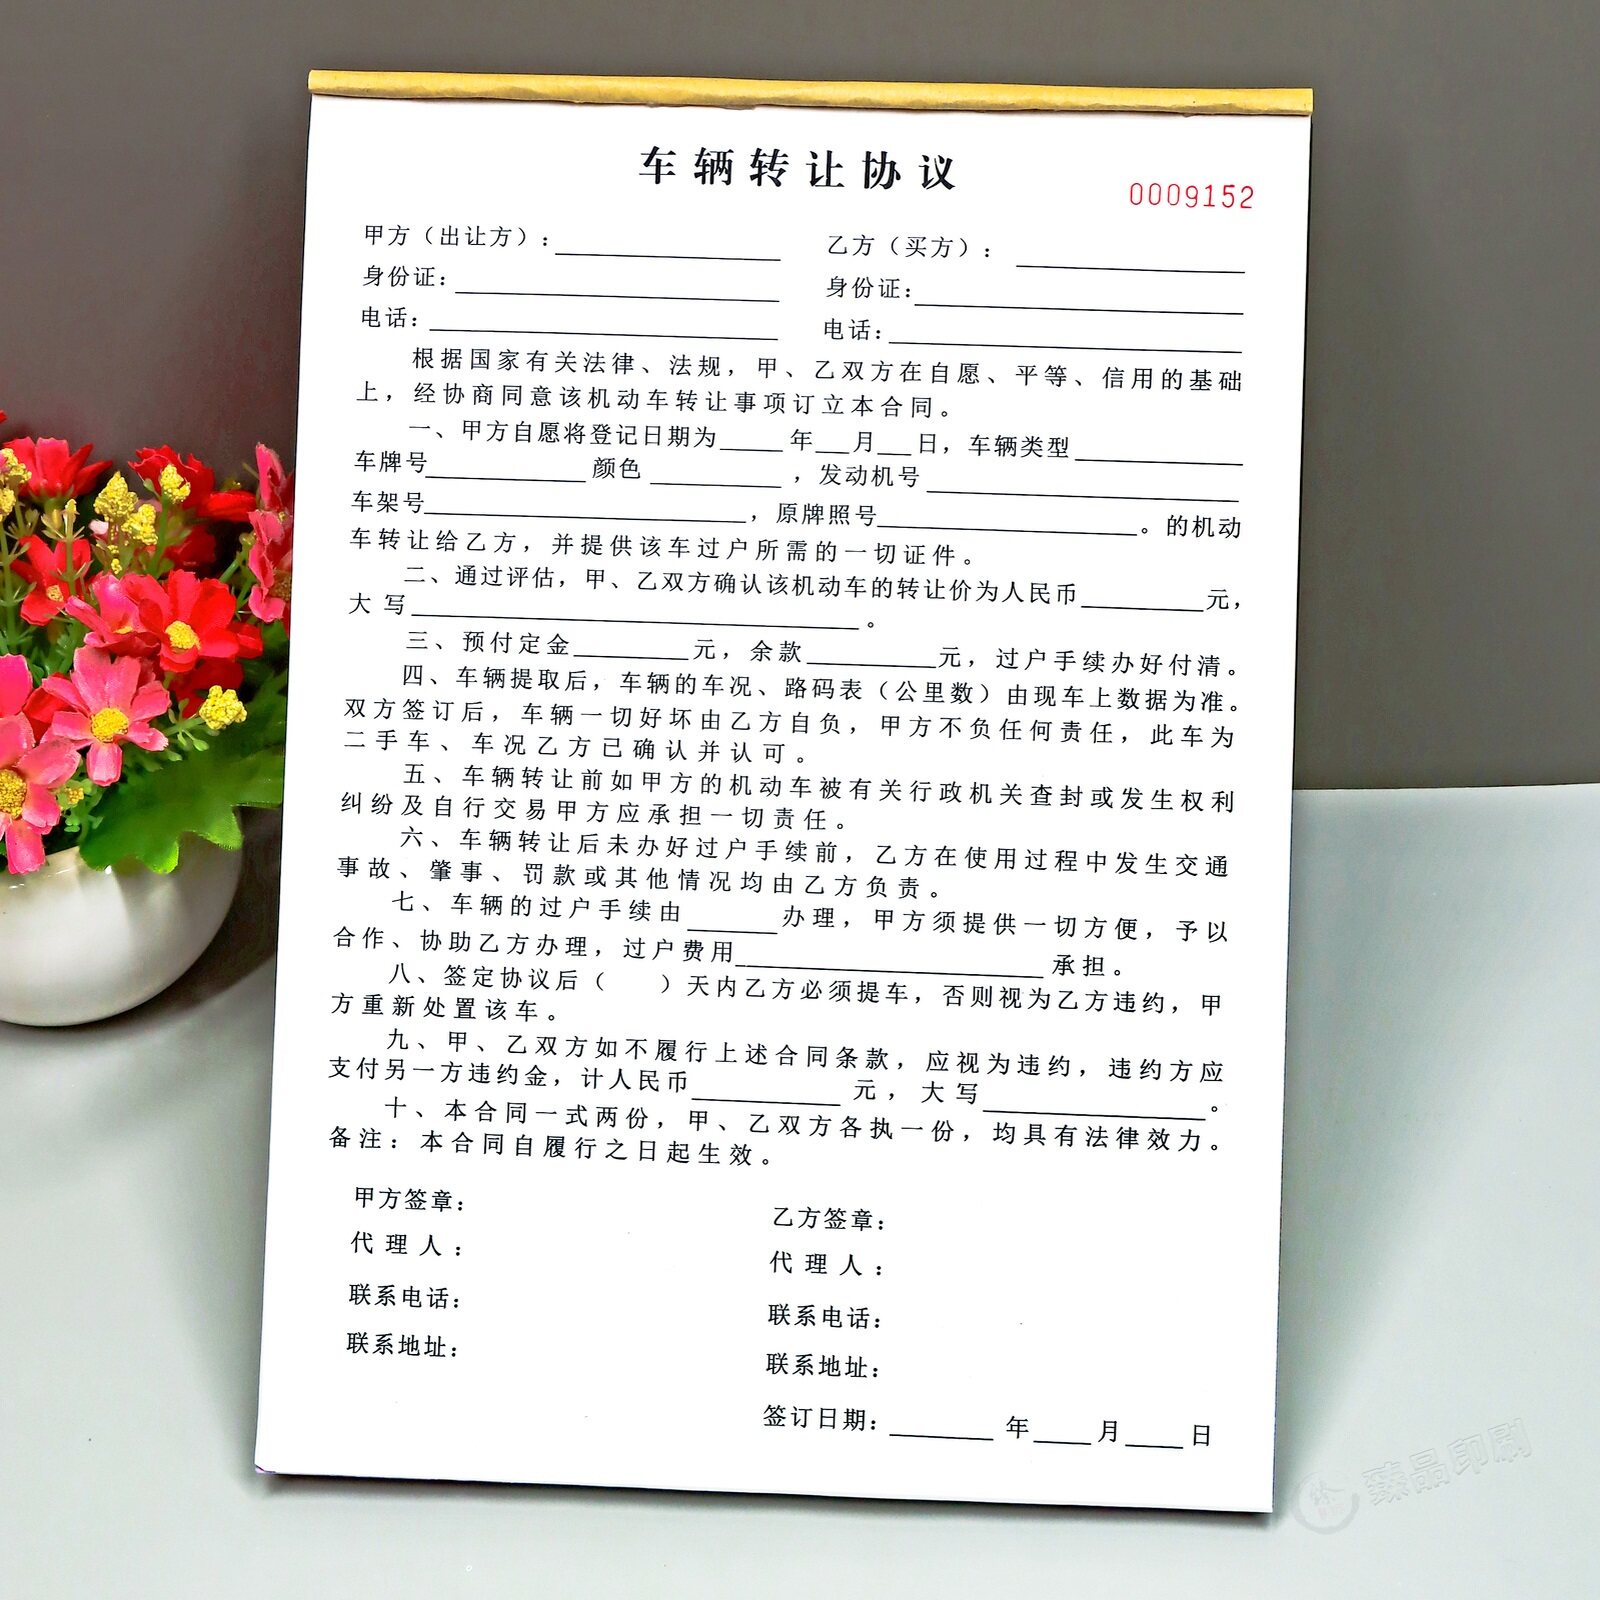 车辆转让协议
0009152
甲方（出让方）：__________ 乙方（买方）：__________
身份证：__________ 身份证：__________
电话：__________ 电话：__________
根据国家有关法律、法规，甲、乙双方在自愿、平等、信用的基础
上，经协商同意该机动车转让事项订立本合同。
一、甲方自愿将登记日期为_____年___月___日，车辆类型__________
车牌号__________颜色__________，发动机号__________
车架号__________，原牌照号__________。的机动
车转让给乙方，并提供该车过户所需的一切证件。
二、通过评估，甲、乙双方确认该机动车的转让价为人民币__________元，
大写__________。
三、预付定金__________元，余款__________元，过户手续办好付清。
四、车辆提取后，车辆的车况、路码表（公里数）由现车上数据为准。
双方签订后，车辆一切好坏由乙方自负，甲方不负任何责任，此车为
二手车、车况乙方已确认并认可。
五、车辆转让前如甲方的机动车被有关行政机关查封或发生权利
纠纷及自行交易甲方应承担一切责任。
六、车辆转让后未办好过户手续前，乙方在使用过程中发生交通
事故、肇事、罚款或其他情况均由乙方负责。
七、车辆的过户手续由_______办理，甲方须提供一切方便，予以
合作、协助乙方办理，过户费用__________承担。
八、签定协议后（　　）天内乙方必须提车，否则视为乙方违约，甲
方重新处置该车。
九、甲、乙双方如不履行上述合同条款，应视为违约，违约方应
支付另一方违约金，计人民币__________元，大写__________。
十、本合同一式两份，甲、乙双方各执一份，均具有法律效力。
备注：本合同自履行之日起生效。
甲方签章： 乙方签章：
代理人： 代理人：
联系电话： 联系电话：
联系地址： 联系地址：
签订日期：________年____月____日
臻品印刷